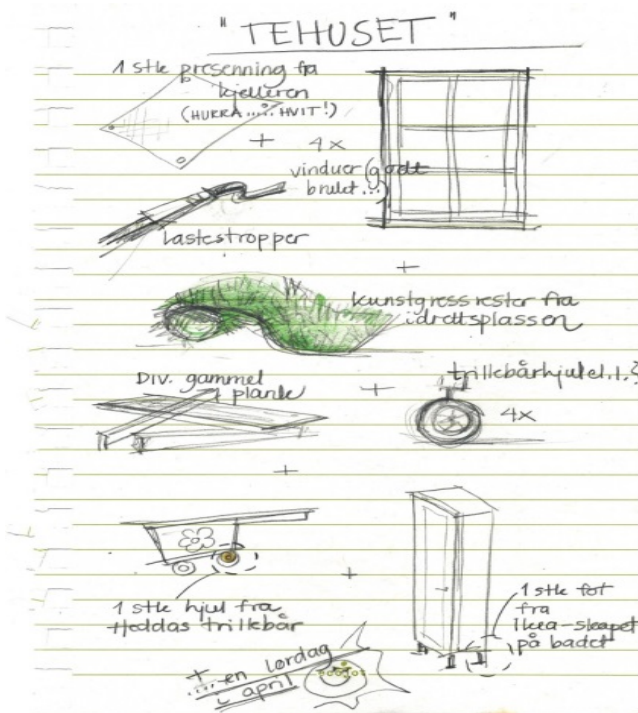 "TEHUSET"
1 stk presenning fra
kjelleren
(HURRA.....HVIT!)
+ 4x
vinduer (godt
brukt...)
lastestropper
+
kunstgressrester fra
idrettsplassen
DIV. gammel
planke
+
trillebårhjul
4x
+
1 stk hjul fra
Heddas trillebår
+
1 stk fot
fra
Ikea-skapet
på badet
+
....en lørdag
i april